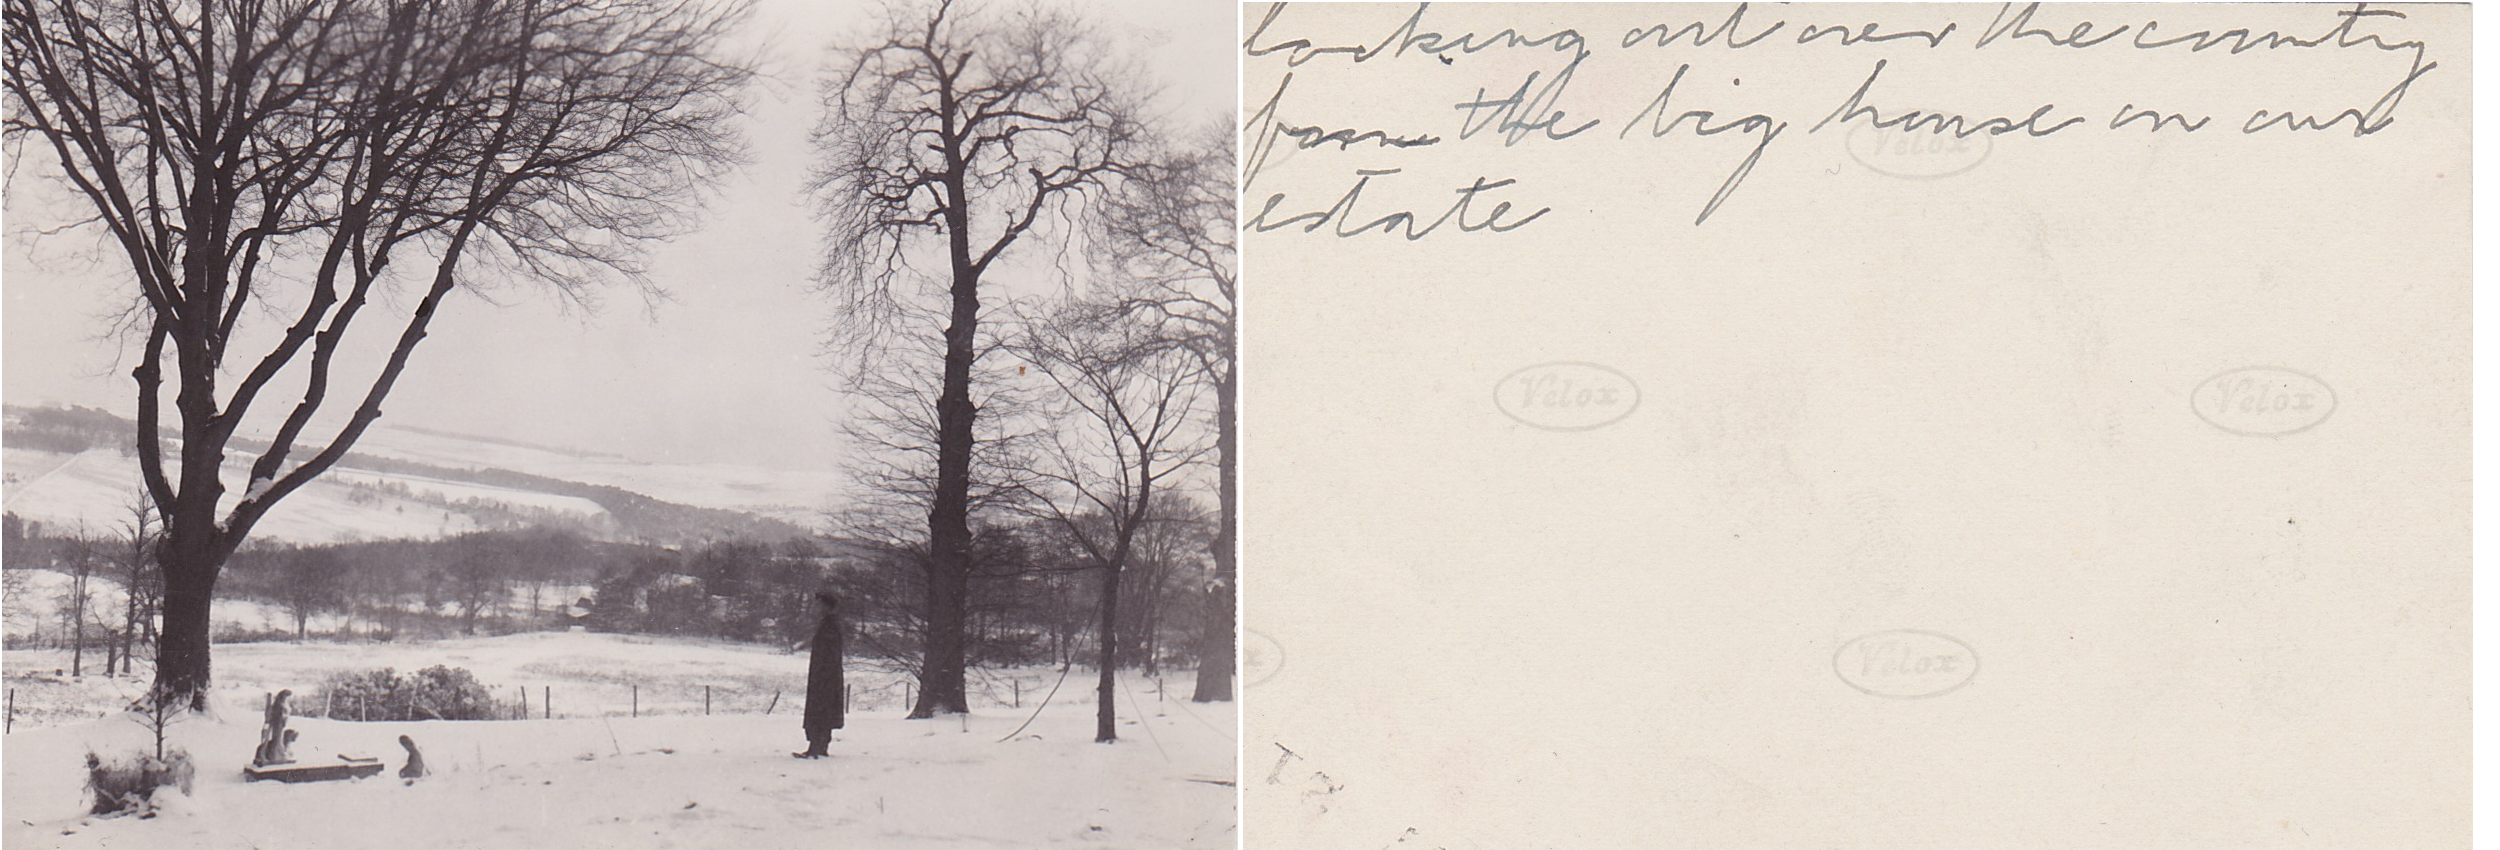 looking out over the country
from the big house on our
estate
Velox
Velox
Velox
Velox
x
12